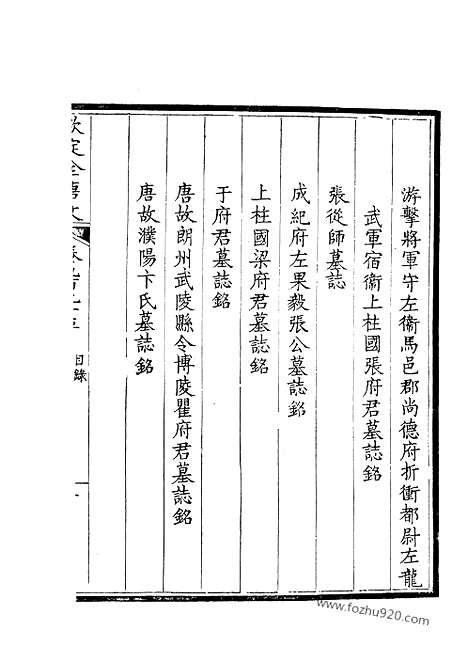 游擊將軍守左衞馬邑郡尚德府折衝都尉左龍
武軍宿衞上柱國張府君墓誌銘
張從師墓誌
成紀府左果毅張公墓誌銘
上柱國梁府君墓誌銘
于府君墓誌銘
唐故朗州武陵縣令博陵瞿府君墓誌銘
唐故濮陽卞氏墓誌銘
欽定全唐文
目錄
www.fozhu920.com